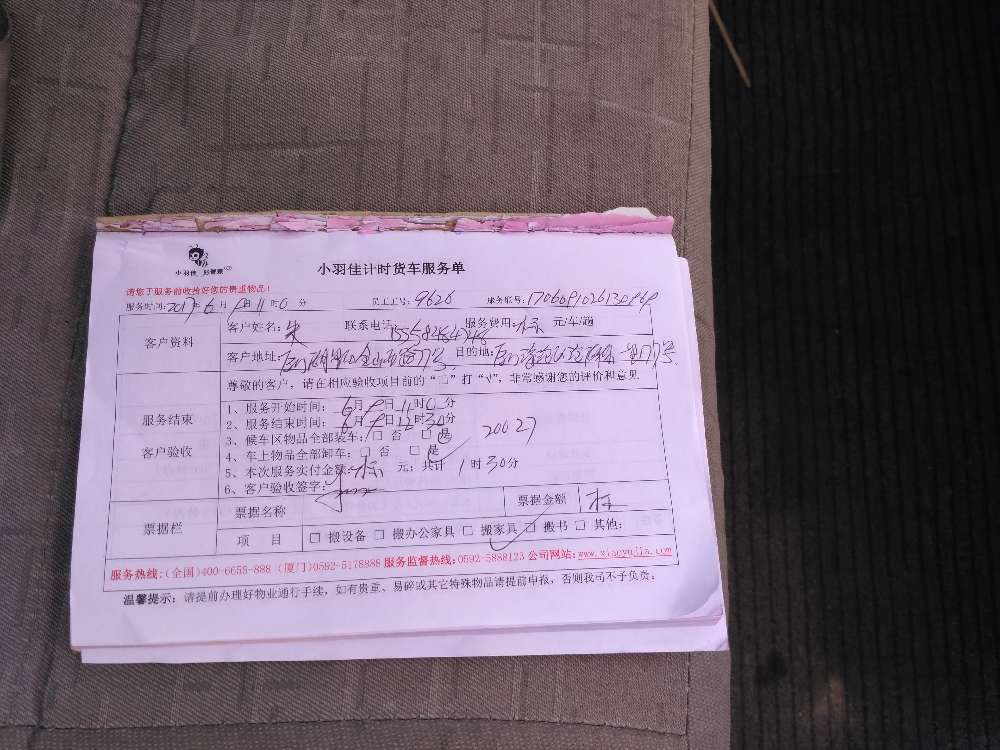 小羽佳
小羽佳计时货车服务单
请您于服务前收拾好您的贵重物品！
服务时间：2017年6月9日11时0分 员工工号：9626 服务账号：
客户资料
客户姓名：朱 联系电话： 服务费用：标 元/车/趟
客户地址： 目的地：
尊敬的客户，请在相应验收项目前的“□”打“√”，非常感谢您的评价和意见
服务结束
客户验收
1、服务开始时间：6月9日11时0分
2、服务结束时间：6月9日12时30分
3、候车区物品全部装车：□ 否 □ 是
20027
4、车上物品全部卸车：□ 否 □ 是
5、本次服务实付金额：标 元；共计 1时30分
6、客户验收签字：
票据栏
票据名称 票据金额 标
项 目 □ 搬设备 □ 搬办公家具 □ 搬家具 □ 搬书 □ 其他：
服务热线：(全国)400-6655-888 (厦门)0592-5178888 服务监督热线：0592-5888123 公司网站：www.xiaoyujia.com
温馨提示：请提前办理好物业通行手续，如有贵重、易碎或其它特殊物品请提前申报，否则我司不予负责。